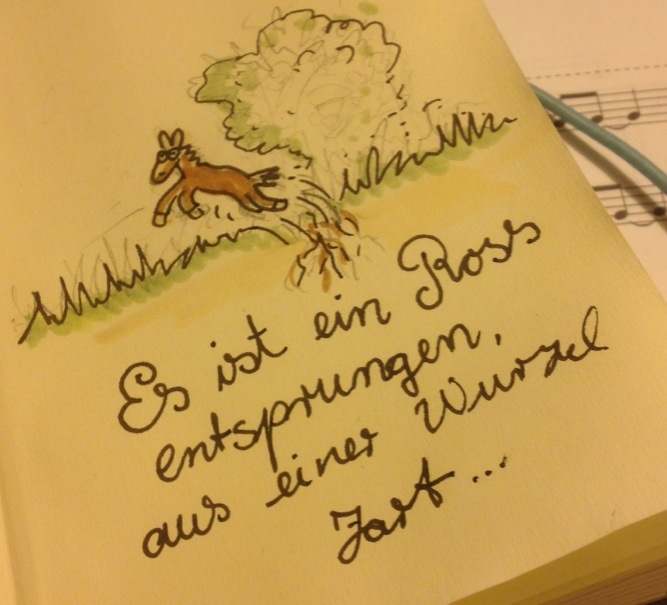 Es ist ein Ross
entsprungen,
aus einer Wurzel
Zart...